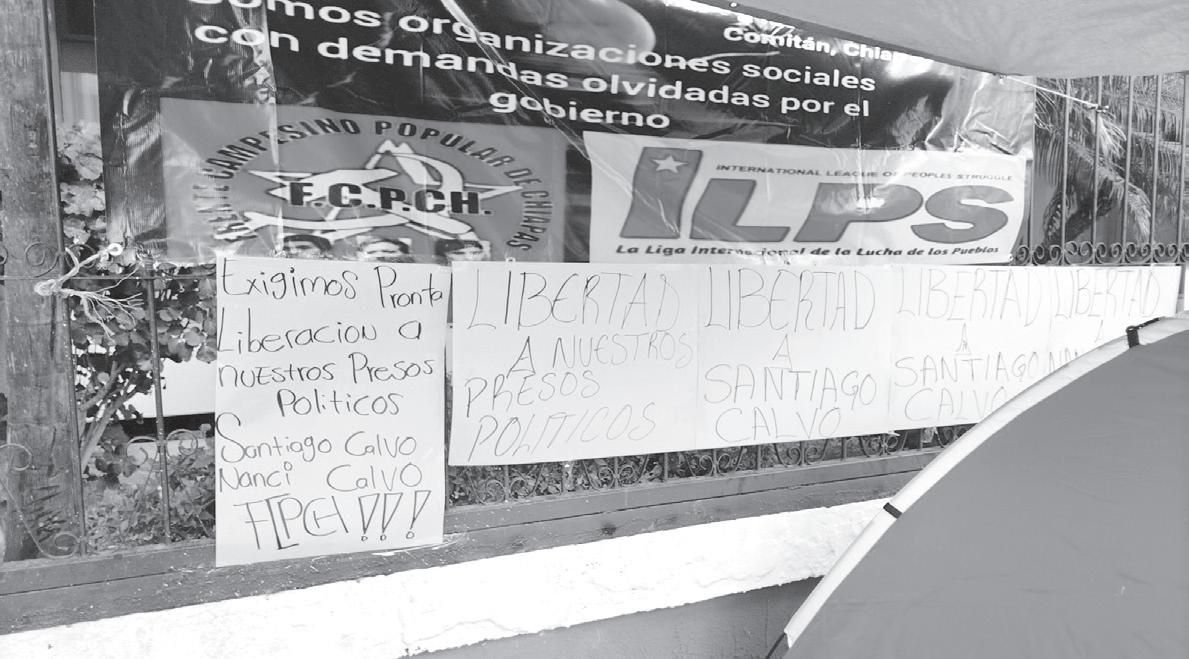 Somos organizaciones sociales
con demandas olvidadas por el
gobierno
Comitán,
FRENTE CAMPESINO POPULAR DE CHIAPAS
F.C.P.CH.
ILPS
INTERNATIONAL LEAGUE OF PEOPLES STRUGGLE
La Liga Internacional de la Lucha de los Pueblos
Exigimos Pronta
Liberacion a
nuEstros Presos
Politicos
Santiago Calvo
Nanci Calvo
FCPCH!!!
LIBERTAD
A NUESTROS
PRESOS
POLITICOS
LIBERTAD
A
SANTIAGO
CALVO
LIBERTAD
A
SANTIAGO
CALVO
LIBERTAD
A